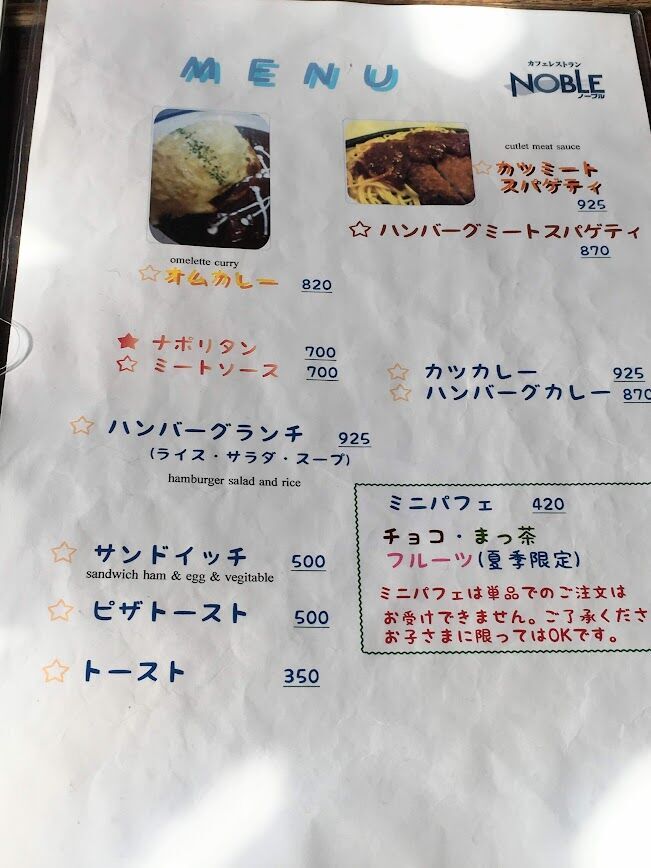 MENU
カフェレストラン
NOBLE
ノーブル
cutlet meat sauce
☆カツミート
スパゲティ
925
☆ハンバーグミートスパゲティ
870
omelette curry
☆オムカレー 820
★ ナポリタン 700
☆ ミートソース 700
☆ カツカレー 925
☆ ハンバーグカレー 870
☆ ハンバーグランチ 925
(ライス・サラダ・スープ)
hamburger salad and rice
ミニパフェ 420
チョコ・まっ茶
フルーツ(夏季限定)
ミニパフェは単品でのご注文は
お受けできません。ご了承くださ
お子さまに限ってはOKです。
☆ サンドイッチ 500
sandwich ham & egg & vegitable
☆ ピザトースト 500
☆ トースト 350